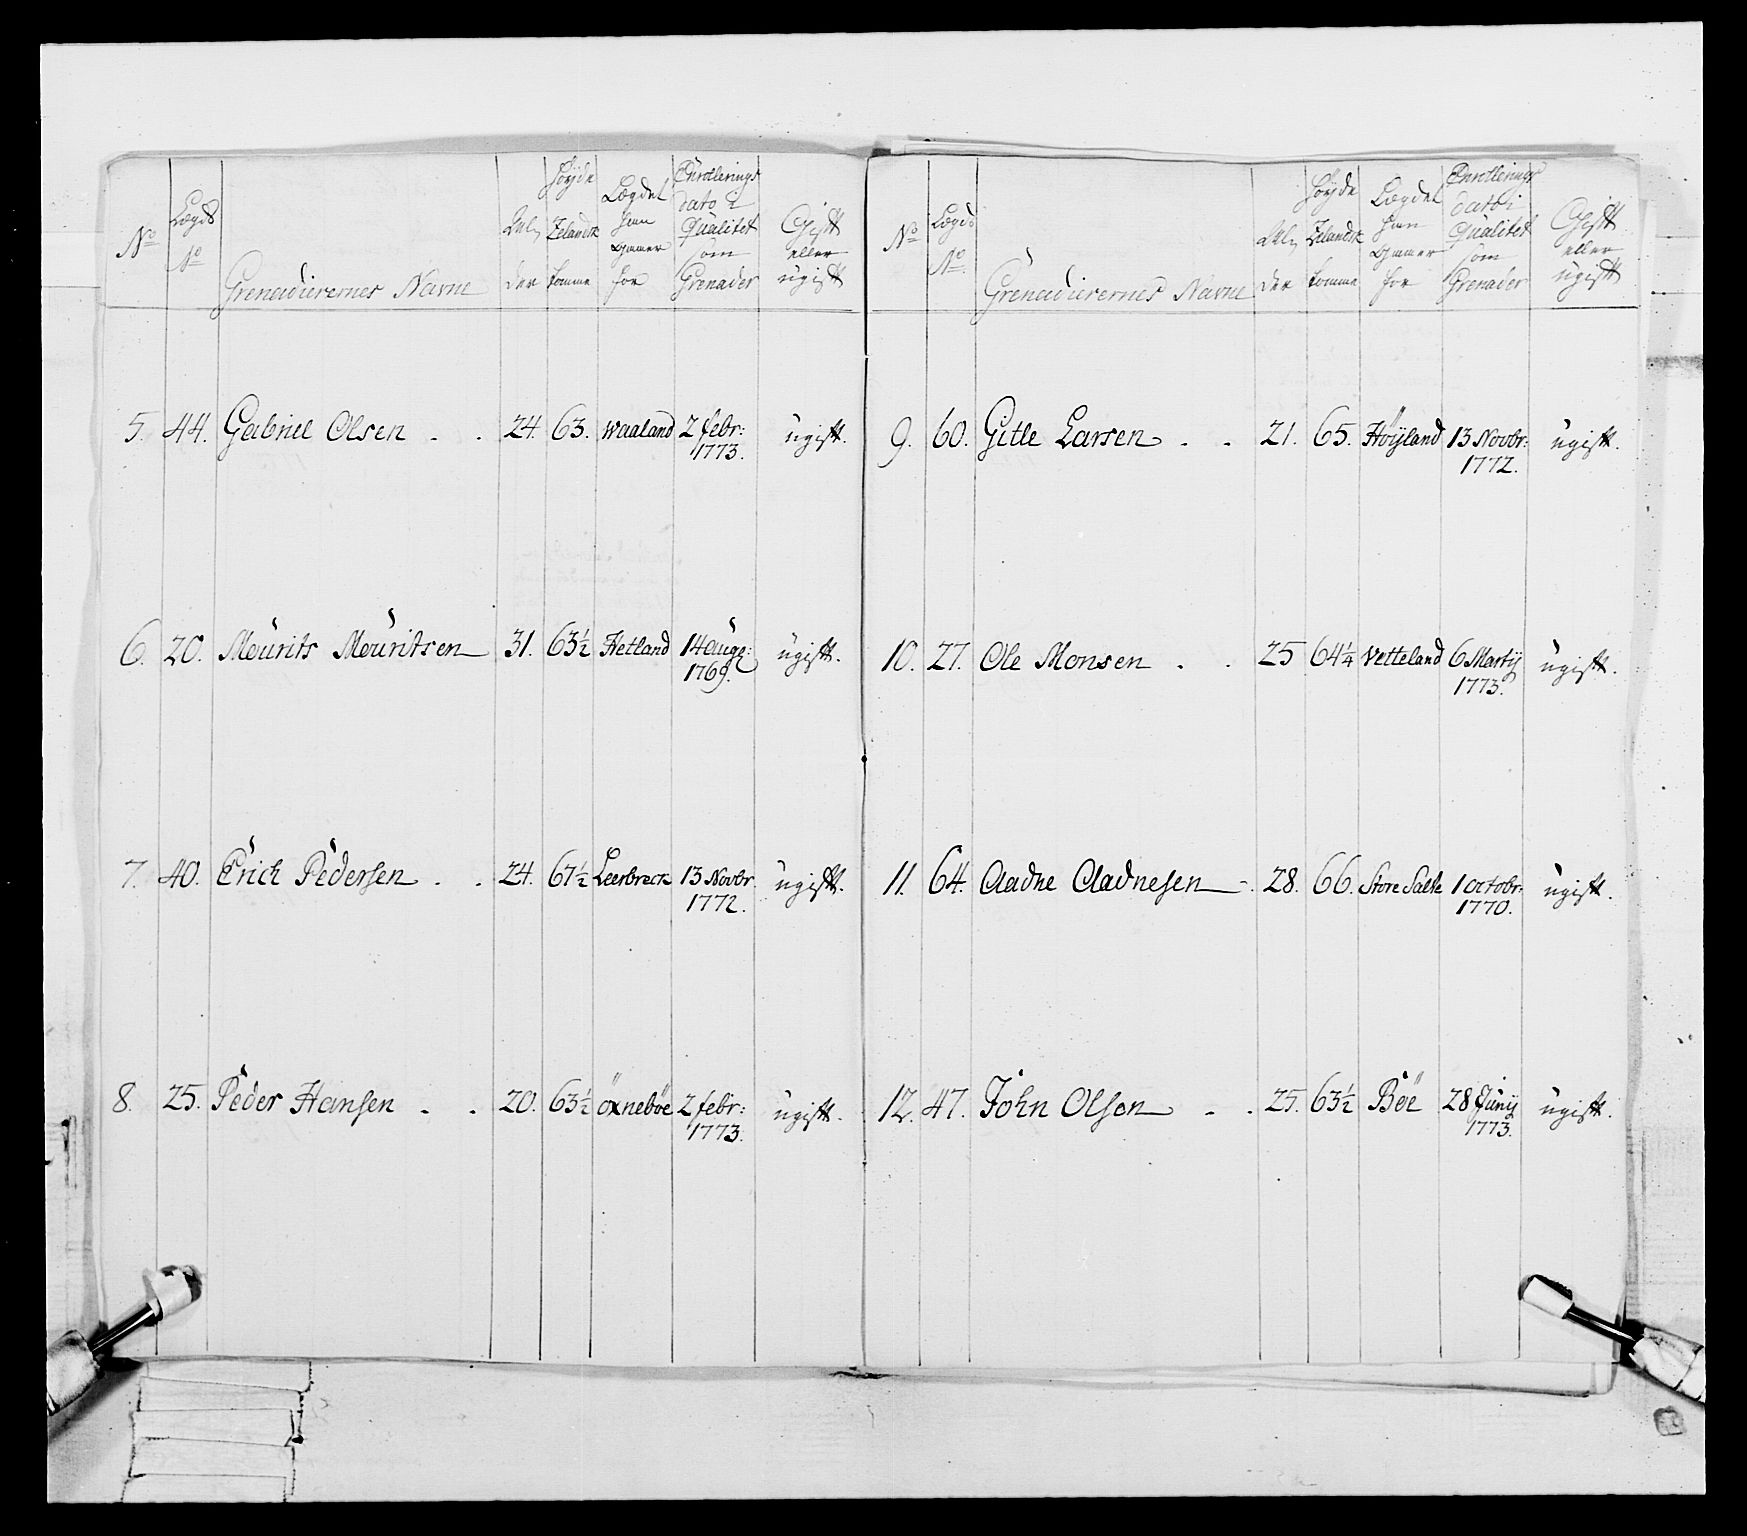 No Lægds No Grenadierernes Navne Alder Høyde Zelandsk Tomme Lægdet han kommer for Enrollerings dato i Qualitet som Grenader Gift eller ugift
5. 44. Gabriel Olsen . . 24. 63. Waaland 2 febr: 1773. ugift.
6. 20. Mourits Mouritsen 31. 63½ Hetland 14 aug: 1769. ugift.
7. 40. Erich Pedersen . . 24. 67½ Leerbreck 13 Novbr 1772. ugift.
8. 25. Peder Hansen . . 20. 63½ öxneböe 2 febr: 1773. ugift.
No Lægds No. Grenadierernes Navne Alder Høyde Zelandsk Tomme Lægdet han kommer for Enrollerings dato i Qualitet som Grenader Gift eller ugift
9. 60. Gitle Larsen . . 21. 65. Höÿland 13 Novbr: 1772. ugift.
10. 27. Ole Monsen . . 25 64¼ Vetteland 6 Martÿ 1773. ugift.
11. 64. Aadne Aadnesen . 28. 66. Store Salte 1 octobr: 1770. ugift.
12. 47. John Olsen . . 25. 63½ Böe 28 Junÿ 1773. ugift.